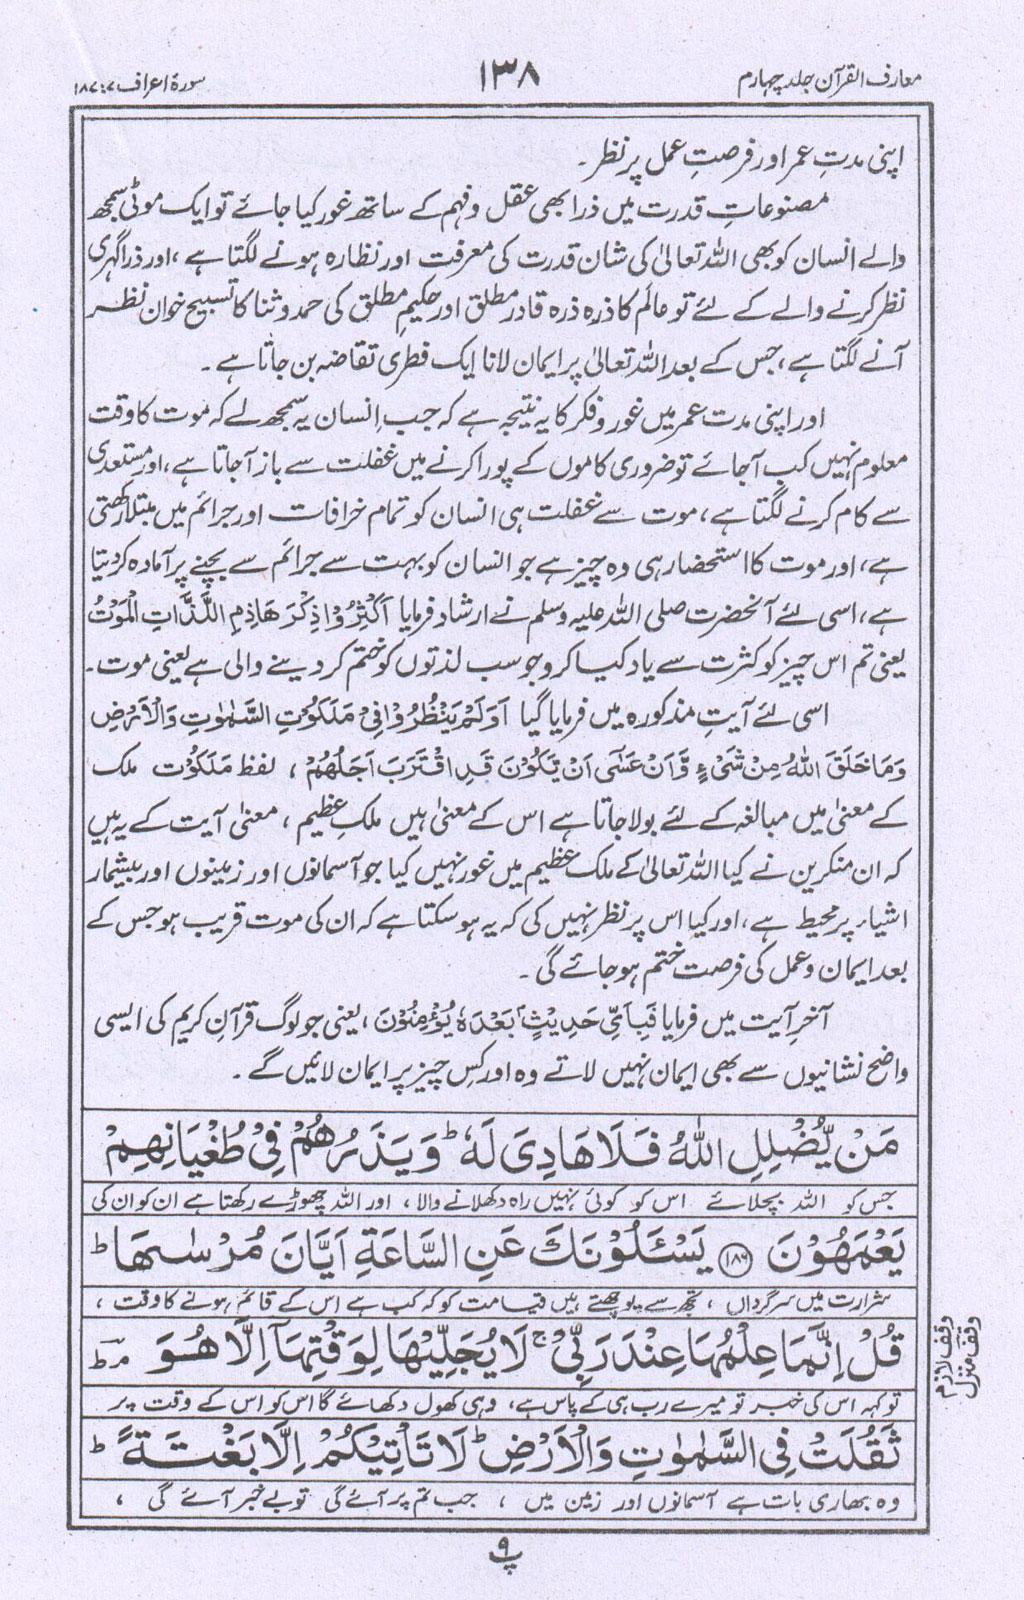 معارف القرآن جلد چہارم
۱۳۸
سورۂ اعراف ۷ : ۱۸۷
اپنی مدتِ عمر اور فرصتِ عمل پر نظر۔
مصنوعاتِ قدرت میں ذرا بھی عقل و فہم کے ساتھ غور کیا جائے تو ایک موٹی سمجھ
والے انسان کو بھی اللہ تعالیٰ کی شان قدرت کی معرفت اور نظارہ ہونے لگتا ہے، اور ذرا گہری
نظر کرنے والے کے لئے تو عالَم کا ذرہ ذرہ قادر مطلق اور حکیمِ مطلق کی حمد و ثنا کا تسبیح خوان نظر
آنے لگتا ہے، جس کے بعد اللہ تعالیٰ پر ایمان لانا ایک فطری تقاضہ بن جاتا ہے۔
اور اپنی مدت عمر میں غور و فکر کا یہ نتیجہ ہے کہ جب انسان یہ سمجھ لے کہ موت کا وقت
معلوم نہیں کب آجائے تو ضروری کاموں کے پورا کرنے میں غفلت سے باز آجاتا ہے، اور مستعدی
سے کام کرنے لگتا ہے، موت سے غفلت ہی انسان کو تمام خرافات اور جرائم میں مبتلا رکھتی
ہے، اور موت کا استحضار ہی وہ چیز ہے جو انسان کو بہت سے جرائم سے بچنے پر آمادہ کر دیتا
ہے، اسی لئے آنحضرت صلی اللہ علیہ وسلم نے ارشاد فرمایا اَکْثِرُوْا ذِکْرَ ھَاذِمِ اللَّذَّاتِ الْمَوْتُ
یعنی تم اس چیز کو کثرت سے یاد کیا کرو جو سب لذتوں کو ختم کر دینے والی ہے یعنی موت۔
اسی لئے آیتِ مذکورہ میں فرمایا گیا اَوَلَمْ یَنْظُرُوْا فِیْ مَلَکُوْتِ السَّمٰوٰتِ وَالْاَرْضِ
وَمَا خَلَقَ اللّٰہُ مِنْ شَیْءٍ وَّاَنْ عَسٰٓی اَنْ یَّکُوْنَ قَدِ اقْتَرَبَ اَجَلُھُمْ، لفظ مَلَکُوْت ملک
کے معنیٰ میں مبالغہ کے لئے بولا جاتا ہے اس کے معنیٰ ہیں ملکِ عظیم، معنیٰ آیت کے یہ ہیں
کہ ان منکرین نے کیا اللہ تعالیٰ کے ملک عظیم میں غور نہیں کیا جو آسمانوں اور زمینوں اور بیشمار
اشیاء پر محیط ہے، اور کیا اس پر نظر نہیں کی کہ یہ ہو سکتا ہے کہ ان کی موت قریب ہو جس کے
بعد ایمان و عمل کی فرصت ختم ہو جائے گی۔
آخر آیت میں فرمایا فَبِاَیِّ حَدِیْثٍۢ بَعْدَہٗ یُؤْمِنُوْنَ، یعنی جو لوگ قرآنِ کریم کی ایسی
واضح نشانیوں سے بھی ایمان نہیں لاتے وہ اور کس چیز پر ایمان لائیں گے۔
مَنْ یُّضْلِلِ اللّٰہُ فَلَا ھَادِیَ لَہٗ ؕ وَیَذَرُھُمْ فِیْ طُغْیَانِھِمْ
جس کو اللہ بچلائے اس کو کوئی نہیں راہ دکھلانے والا، اور اللہ چھوڑے رکھتا ہے ان کو ان کی
یَعْمَھُوْنَ ﴿۱۸۶﴾ یَسْئَلُوْنَکَ عَنِ السَّاعَةِ اَیَّانَ مُرْسٰىھَا ؕ
شرارت میں سرگرداں، تجھ سے پوچھتے ہیں قیامت کو کہ کب ہے اس کے قائم ہونے کا وقت،
قُلْ اِنَّمَا عِلْمُھَا عِنْدَ رَبِّیْ ۚ لَا یُجَلِّیْھَا لِوَقْتِھَآ اِلَّا ھُوَ ؕ م
وقف لازم
وقف منزل
تو کہہ اس کی خبر تو میرے رب ہی کے پاس ہے، وہی کھول دکھائے گا اس کو اس کے وقت پر
ثَقُلَتْ فِی السَّمٰوٰتِ وَالْاَرْضِ ؕ لَا تَاْتِیْکُمْ اِلَّا بَغْتَةً ؕ
وہ بھاری بات ہے آسمانوں اور زمین میں، جب تم پر آئے گی تو بے خبر آئے گی،
پ ۹